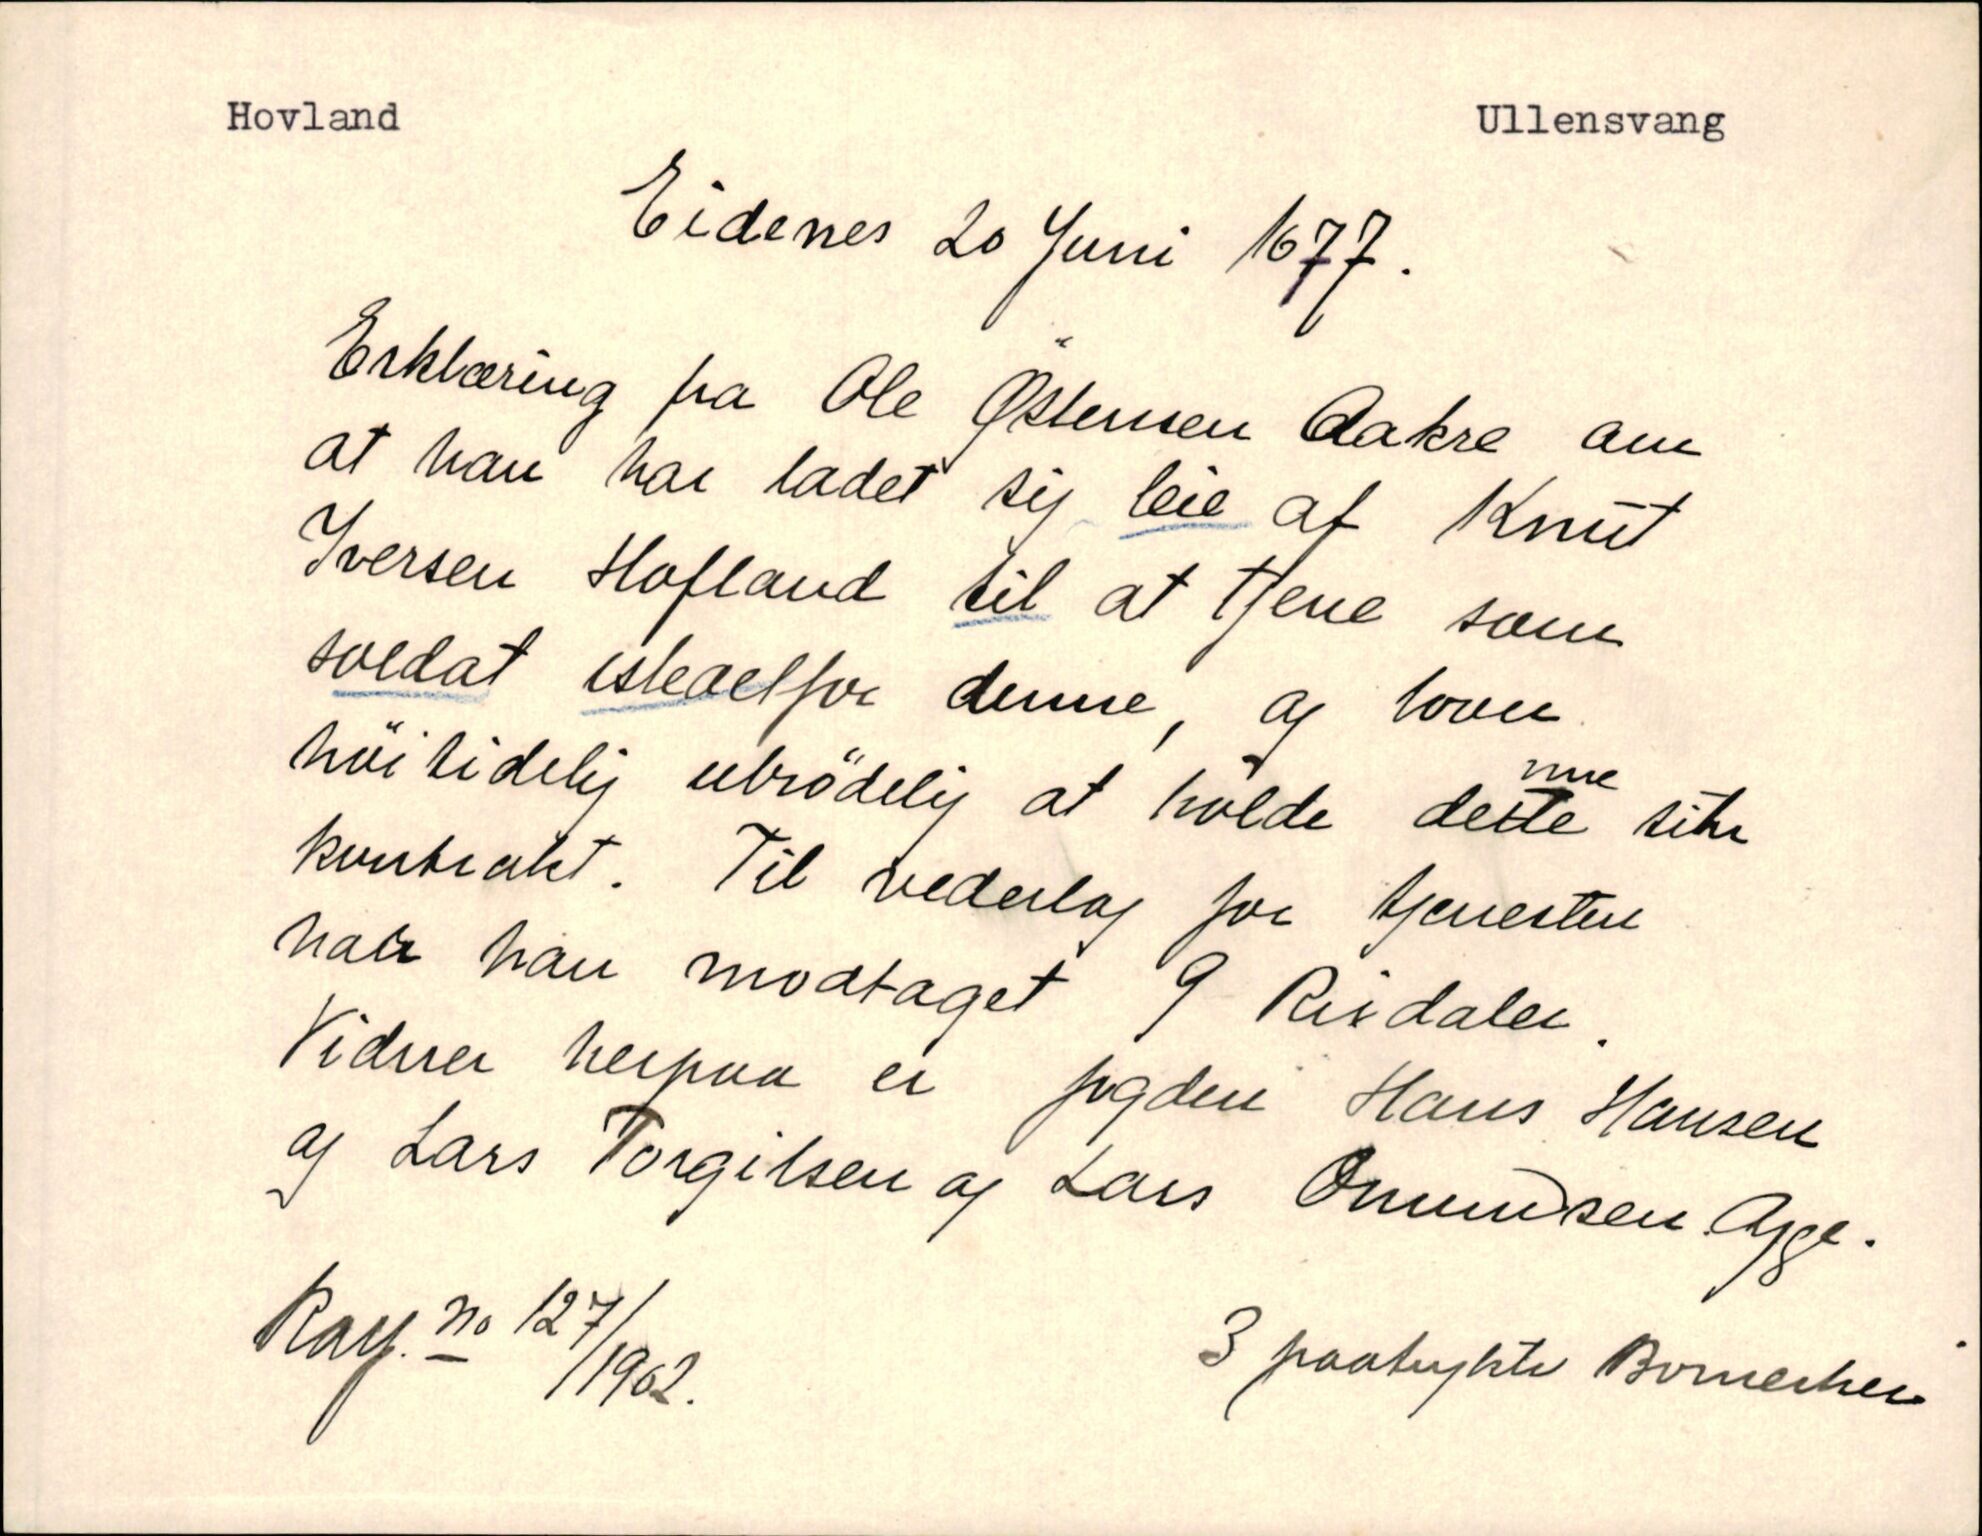 Hovland Ullensvang
Eidenes 20 Juni 1677.
Erklæring fra Ole Østensen Aakre om
at han har ladet sig leie af Knut
Iversen Hofland til at tjene som
soldat istedet for denne, og lover
höitidelig ubrödelig at holde dette nne sin
kontrakt. Til vederlag for tjenesten
har han modtaget 9 Rixdaler.
Vidner herpaa er fogden Hans Hansen
og Lars Torgilsen og Lars Omundsen Agge.
No 127/1902.
3 paatrykte Bomerker